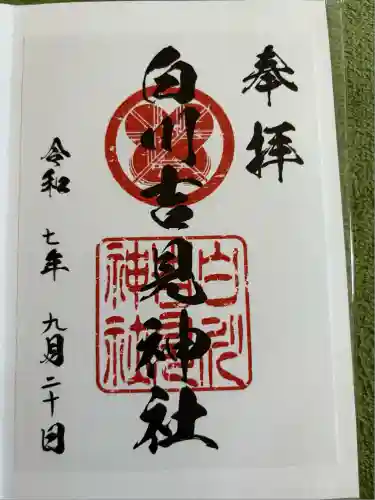 奉拝
白川吉見神社
白川
吉見
神社
令和 七年 九月二十日